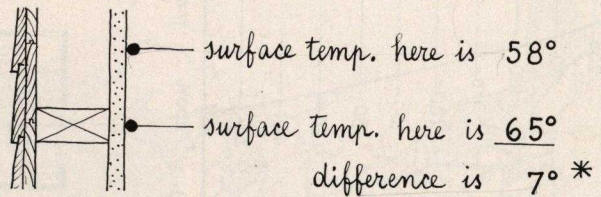 surface temp. here is 58°
surface temp. here is 65°
difference is 7° *